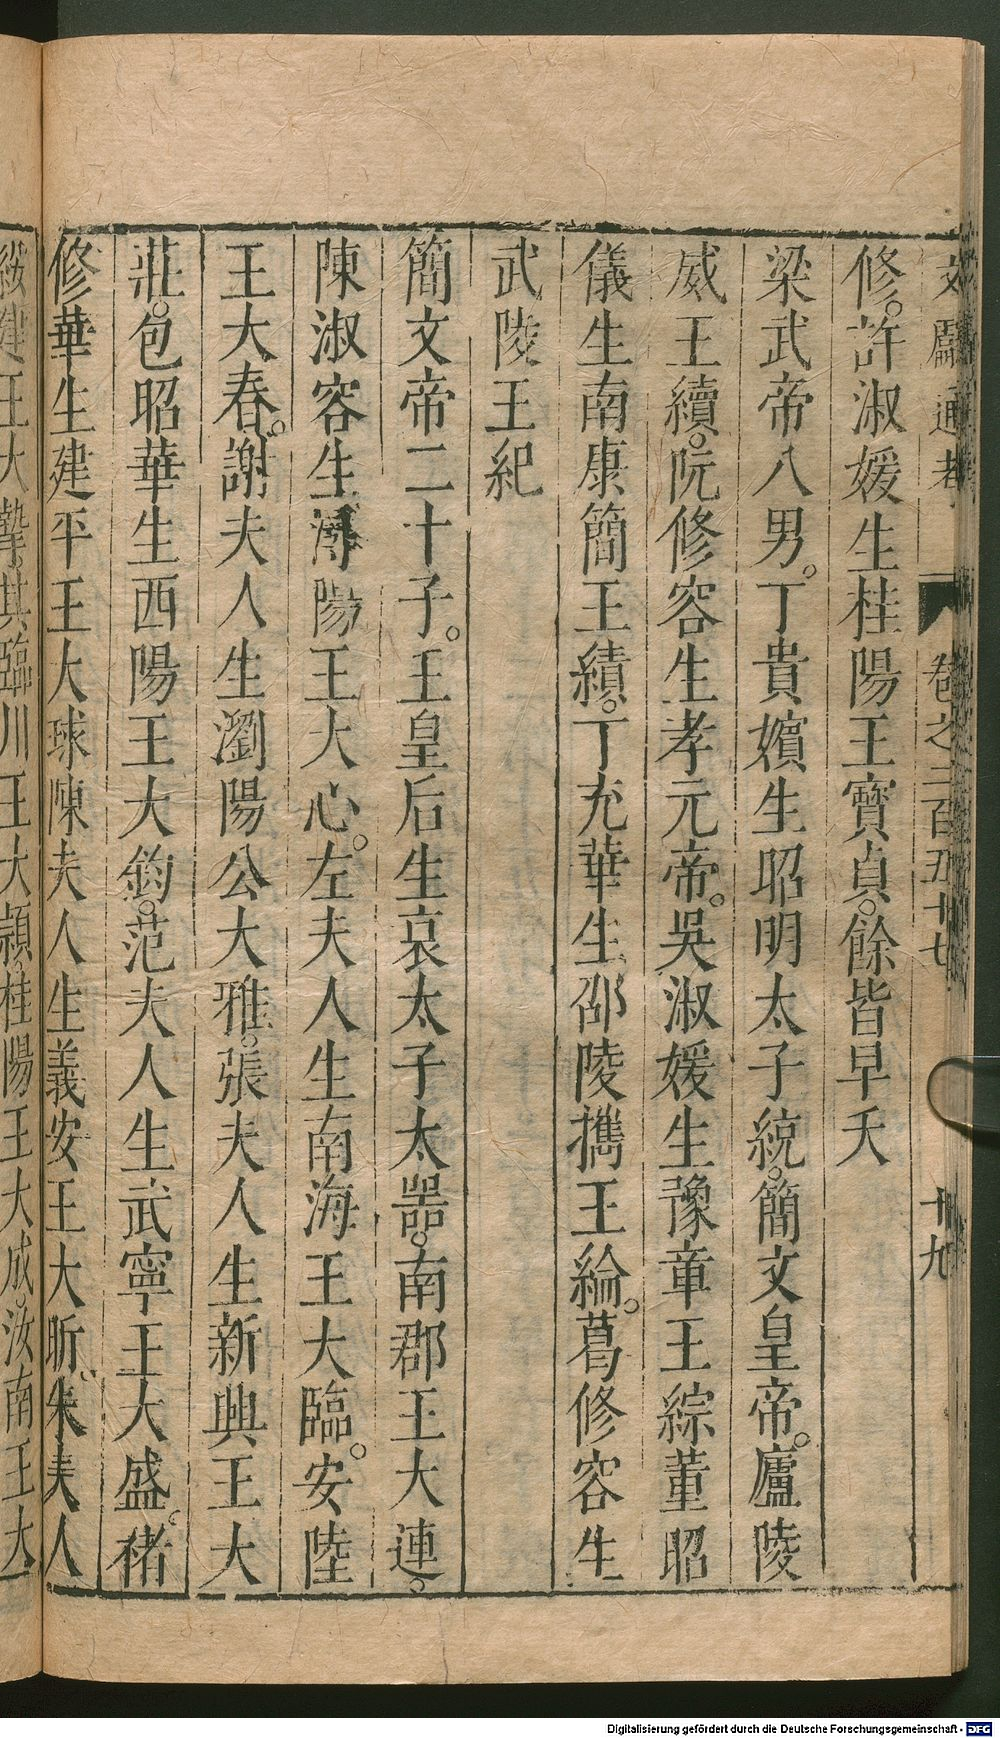 文獻通考 卷之二百五十七 十九
修。許淑媛生桂陽王寶貞。餘皆早夭
梁武帝八男。丁貴嬪生昭明太子統。簡文皇帝。廬陵
威王續。阮修容生孝元帝。吳淑媛生豫章王綜董昭
儀生南康簡王績。丁充華生邵陵攜王綸。葛修容生
武陵王紀
簡文帝二十子。王皇后生哀太子太噐。南郡王大連。
陳淑容生潯陽王大心。左夫人生南海王大臨。安陸
王大春。謝夫人生瀏陽公大雅。張夫人生新興王大
莊。包昭華生西陽王大鈞。范夫人生武寧王大盛。褚
修華生建平王大球陳夫人生義安王大昕。朱夫人
綏建王大摯。其臨川王大穎。桂陽王大成。汝南王大
Digitalisierung gefördert durch die Deutsche Forschungsgemeinschaft - DFG